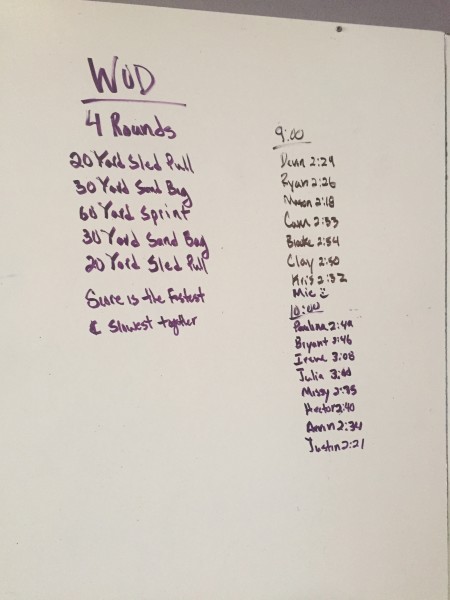 WOD
4 Rounds
20 Yard Sled Pull
30 Yard Sand Bag
60 Yard Sprint
30 Yard Sand Bag
20 Yard Sled Pull
Score is the Fastest
& Slowest together
9:00
Devin 2:29
Ryan 2:26
Mason 2:18
Cam 2:33
Brooke 2:54
Clay 2:50
Kris 2:32
Mic
10:00
Paulina 2:49
Bryant 3:46
Irene 3:08
Julia 3:00
Missy 2:35
Hector 2:40
Annn 2:34
Justin 2:21